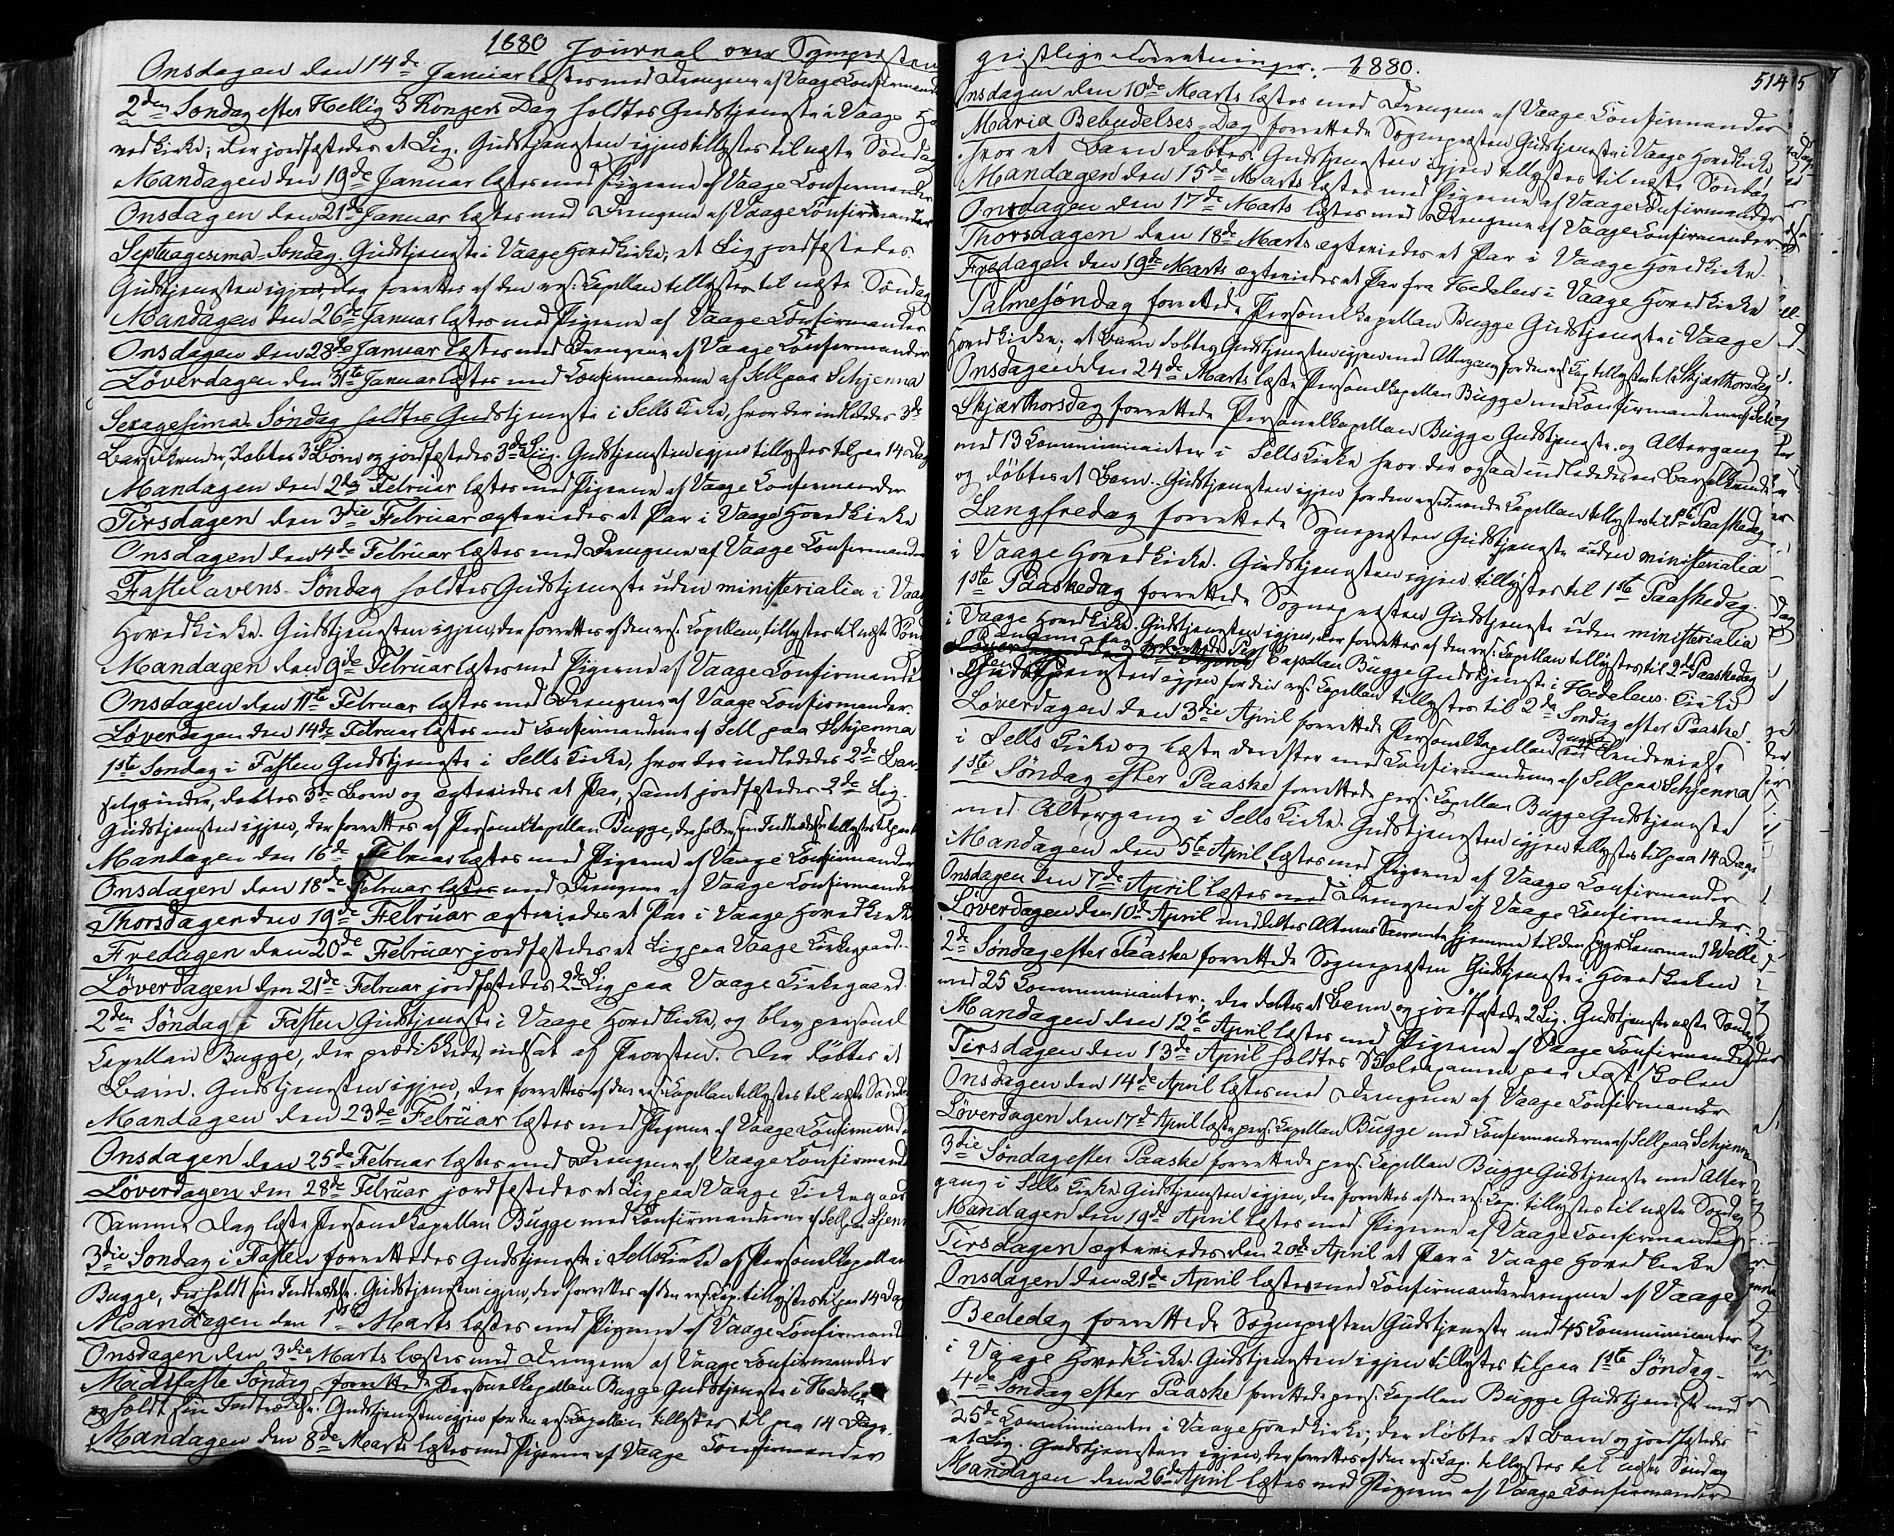 1880 Journal over Sognepræstens
Onsdagen den 14de Januar læstes med Drengene af Vaage Confirmander
2den Søndag efter Hellig 3 Kongers Dag holdtes Gudstjeneste i Vaage Ho-
vedkirke; der jordfæstedes et Lig. Gudstjenesten igjen tillystes til næste Søndag
Mandagen den 19de Januar læstes med Pigerne af Vaage Confirmander
Onsdagen den 21de Januar læstes med Drengene af Vaage Confirmander
Septuagesima-Søndag. Gudstjeneste i Vaage Hovedkirke, et Lig jordfæstedes.
Gudstjenesten igjen, der forrettes af den res: Capellan tillystes til næste Søndag
Mandagen den 26de Januar læstes med Pigerne af Vaage Confirmander
Onsdagen den 28de Januar læstes med Drengene af Vaage Confirmander
Løverdagen den 31te Januar læstes med Confirmanderne af Sell paa Schjenna
Sexagesima Søndag holdtes Gudstjeneste i Sells Kirke, hvor der indlededes 3de
Barselkvinder, døbtes 3 Børn og jordfæstedes 3de Lig. Gudstjenesten igjen tillystes til paa 14 Dag
Mandagen den 2den Februar læstes med Pigerne af Vaage Confirmander
Tirsdagen den 3die Februar ægteviedes et Par i Vaage Hovedkirke
Onsdagen den 4de Februar læstes med Drengene af Vaage Confirmander
Fastelavens-Søndag holdtes Gudstjeneste uden ministerialia i Vaage
Hovedkirke. Gudstjenesten igjen, der forrettes af den res: Capellan, tillystes til næste Sønd
Mandagen den 9de Februar læstes med Pigerne af Vaage Confirmander
Onsdagen den 11te Februar læstes med Drengene af Vaage Confirmander
Løverdagen den 14de Februar læstes med Confirmanderne af Sell paa Schjenna
1ste Søndag i Fasten Gudstjeneste i Sells Kirke, hvor der indlededes 2de Bar-
selqvinder, døbtes 3de Børn og ægteviedes et Par, samt jordfæstedes 2de Lig.
Gudstjenesten igjen, der forrettes af Personelkapellan Bugge, der holder sin Indtrædelse tillystes til paa
Mandagen den 16de Februar læstes med Pigerne af Vaage Confirmander
Onsdagen den 18de Februar læstes med Drengene af Vaage Confirmander
Thorsdagen den 19de Februar ægteviedes et Par i Vaage Hovedkirke
Fredagen den 20de Februar jordfæstedes et Lig paa Vaage Kirkegaard.
Løverdagen den 21de Februar jordfæstedes 2de Lig paa Vaage Kirkegaard
2den Søndag i Fasten Gudstjeneste i Vaage Hovedkirke, og blev personel
Capellan Bugge, der prædikkede, indsat af Provsten. Der døbtes et
Barn. Gudstjenesten igjen, der forrettes af den res: Capellan tillystes til næste Søndag
Mandagen den 23de Februar læstes med Pigerne af Vaage Confirmander
Onsdagen den 25de Februar læstes med Drengene af Vaage Confirmand
Løverdagen den 28de Februar jordfæstedes et Lig paa Vaage Kirkegaard
Samme Dag læste Personelkapellan Bugge med Confirmanderne af Sell paa Sjenna
3die Søndag i Fasten forrettedes Gudstjeneste i Sells Kirke af Personelkapellan
Bugge, der holdt sin Indtrædelse. Gudstjenesten igjen, der forrettes af den res: Cap. tillystes til paa 14 Dag
Mandagen den 1ste Marts læstes med Pigerne af Vaage Confirmand
Onsdagen den 3die Marts læstes med Drengene af Vaage Confirmander
Midfaste Søndag forrettede Personelkapellan Bugge Gudstjeneste i Hedalen
og holdt sin Indtrædelse. Gudstjenesten igjen for den res: Capellan tillystes til paa 14 Dage.
Mandagen den 8de Marts læstes med Pigerne af Vaage Confirmander
geistlige Forretninger. 1880.
514 15
Onsdagen den 10de Marts læstes med Drengene af Vaage Confirmander
Mariæ Bebudelses-Dag forrettede Sognepræsten Gudstjeneste i Vaage Hovedkirke,
hvor et Barn døbtes. Gudstjenesten igjen tillystes til næste Søndag
Mandagen den 15de Marts læstes med Pigerne af Vaage Confirmander
Onsdagen den 17de Marts læstes med Drengene af Vaage Confirmander
Thorsdagen den 18de Marts ægteviedes et Par i Vaage Hovedkirke.
Fredagen den 19de Marts ægteviedes et Par fra Hedalen i Vaage Hovedkirke
Palmesøndag forrettede Personelkapellan Bugge Gudstjeneste i Vaage
Hovedkirke; et Barn døbtes. Gudstjenesten igjen med Altergang for den res: Cap. tillystes til Skjærthorsdag
Onsdagen den 24de Marts læste Personelkapellan Bugge med Confirmanderne af Sell
Skjærthorsdag forrettede Personelkapellan Bugge Gudstjeneste og Altergang
med 13 Communicanter i Sells Kirke hvor der ogsaa indlededes en Barselkvinde
og døbtes et Barn. Gudstjenesten igjen for den residerende Capellan tillystes til 1ste Paaskedag
Langfredag forrettede Sognepræsten Gudstjeneste uden ministerialia
i Vaage Hovedkirke. Gudstjenesten igjen tillystes til 1ste Paaskedag.
1ste Paaskedag forrettede Sognepræsten Gudstjeneste uden ministerialia
i Vaage Hovedkirke. Gudstjenesten igjen, der forrettes af den res: Capellan tillystes til 2den Paaskedag
Capellan Bugge Gudstjeneste i Hedalens Kirke
Gudstjenesten igjen for den res: Capellan tillystes til 2de Søndag efter Paaske.
Løverdagen den 3die April forrettede Personelkapellan Bugge
i Sells Kirke og læste derefter med Confirmanderne af Sell paa Schjenna
1ste Søndag efter Paaske forrettede pers: Capellan Bugge Gudstjeneste
med Altergang i Sells Kirke. Gudstjenesten igjen tillystes til paa 14 Dage
Mandagen den 5te April læstes med Pigerne af Vaage Confirmander
Onsdagen den 7de April læstes med Drengene af Vaage Confirmander.
Løverdagen den 10de April meddeltes Alterens Sacramente hjemme til den syge Lensmand Wolle
2de Søndag efter Paaske forrettede Sognepræsten Gudstjeneste i Hovedkirken
med 25 Communicanter; der døbtes et Barn og jordfæstede 2 Lig. Gudstjeneste næste Søndag
Mandagen den 12te April læstes med Pigerne af Vaage Confirmander
Tirsdagen den 13de April holdtes Skoleexamen paa Fastskolen
Onsdagen den 14de April læstes med Drengene af Vaage Confirmander
Løverdagen den 17de April læste pers: Capellan Bugge med Confirmanderne af Sell paa Schjenna
3die Søndag efter Paaske forrettede pers: Capellan Bugge Gudstjeneste med Alter
gang i Sells Kirke. Gudstjenesten igjen, der forrettes af den res: Cap. tillystes til næste Søndag
Mandagen den 19de April læstes med Pigerne af Vaage Confirmander
Tirsdagen ægteviedes den 20de April et Par i Vaage Hovedkirke
Onsdagen den 21de April læstes med Confirmanddrengene af Vaage
Bededag forrettede Sognepræsten Gudstjeneste med 45 Communicanter
i Vaage Hovedkirke. Gudstjenesten igjen tillystes til paa 1ste Søndag-
4de Søndag efter Paaske forrettede pers: Capellan Bugge Gudstjeneste med
25de Communicanter i Vaage Hovedkirke; der døbtes et Barn og jordfæstedes
et Lig. Gudstjenesten igjen, der forrettes af den res: Cap. tillystes til næste Søndag
Mandagen den 26de April læstes med Pigerne af Vaage Confirmander